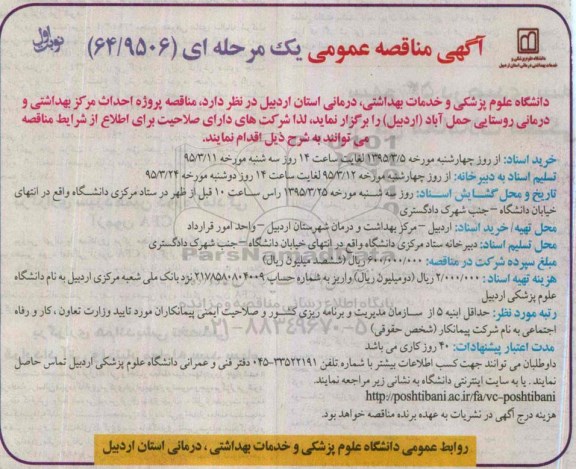 دانشگاه علوم پزشکی و
خدمات بهداشتی درمانی استان اردبیل
آگهی مناقصه عمومی یک مرحله ای (۶۴/۹۵۰۶)
نوبت اول
دانشگاه علوم پزشکی و خدمات بهداشتی، درمانی استان اردبیل در نظر دارد، مناقصه پروژه احداث مرکز بهداشتی و
درمانی روستایی حمل آباد (اردبیل) را برگزار نماید، لذا شرکت های دارای صلاحیت برای اطلاع از شرایط مناقصه
می توانند به شرح ذیل اقدام نمایند.
خرید اسناد: از روز چهارشنبه مورخه ۱۳۹۵/۳/۵ لغایت ساعت ۱۴ روز سه شنبه مورخه ۹۵/۳/۱۱
تسلیم اسناد به دبیرخانه: از روز چهارشنبه مورخه ۹۵/۳/۱۲ لغایت ساعت ۱۴ روز دوشنبه مورخه ۹۵/۳/۲۴
تاریخ و محل گشایش اسناد: روز سه شنبه مورخه ۱۳۹۵/۳/۲۵ راس ساعت ۱۰ قبل از ظهر در ستاد مرکزی دانشگاه واقع در انتهای
خیابان دانشگاه - جنب شهرک دادگستری
محل تهیه/ خرید اسناد: اردبیل - مرکز بهداشت و درمان شهرستان اردبیل - واحد امور قرارداد
محل تسلیم اسناد: دبیرخانه ستاد مرکزی دانشگاه واقع در انتهای خیابان دانشگاه - جنب شهرک دادگستری
مبلغ سپرده شرکت در مناقصه: ۶۰۰/۰۰۰/۰۰۰ ریال (ششصد میلیون ریال)
هزینه تهیه اسناد: ۲/۰۰۰/۰۰۰ ریال (دومیلیون ریال) واریز به شماره حساب ۲۱۷۸۵۸۰۸۰۴۰۰۹ نزد بانک ملی شعبه مرکزی اردبیل به نام دانشگاه
علوم پزشکی اردبیل
رتبه مورد نظر: حداقل ابنیه ۵ از سازمان مدیریت و برنامه ریزی کشور و صلاحیت ایمنی پیمانکاران مورد تایید وزارت تعاون، کار و رفاه
اجتماعی به نام شرکت پیمانکار (شخص حقوقی)
مدت اعتبار پیشنهادات: ۴۰ روز کاری می باشد
داوطلبان می توانند جهت کسب اطلاعات بیشتر با شماره تلفن ۳۳۵۲۲۱۹۱-۰۴۵ دفتر فنی و عمرانی دانشگاه علوم پزشکی اردبیل تماس حاصل
نمایند. یا به سایت اینترنتی دانشگاه به نشانی زیر مراجعه نمایند.
http://poshtibani.ac.ir/fa/vc-poshtibani
هزینه درج آگهی در نشریات به عهده برنده مناقصه خواهد بود.
روابط عمومی دانشگاه علوم پزشکی و خدمات بهداشتی، درمانی استان اردبیل